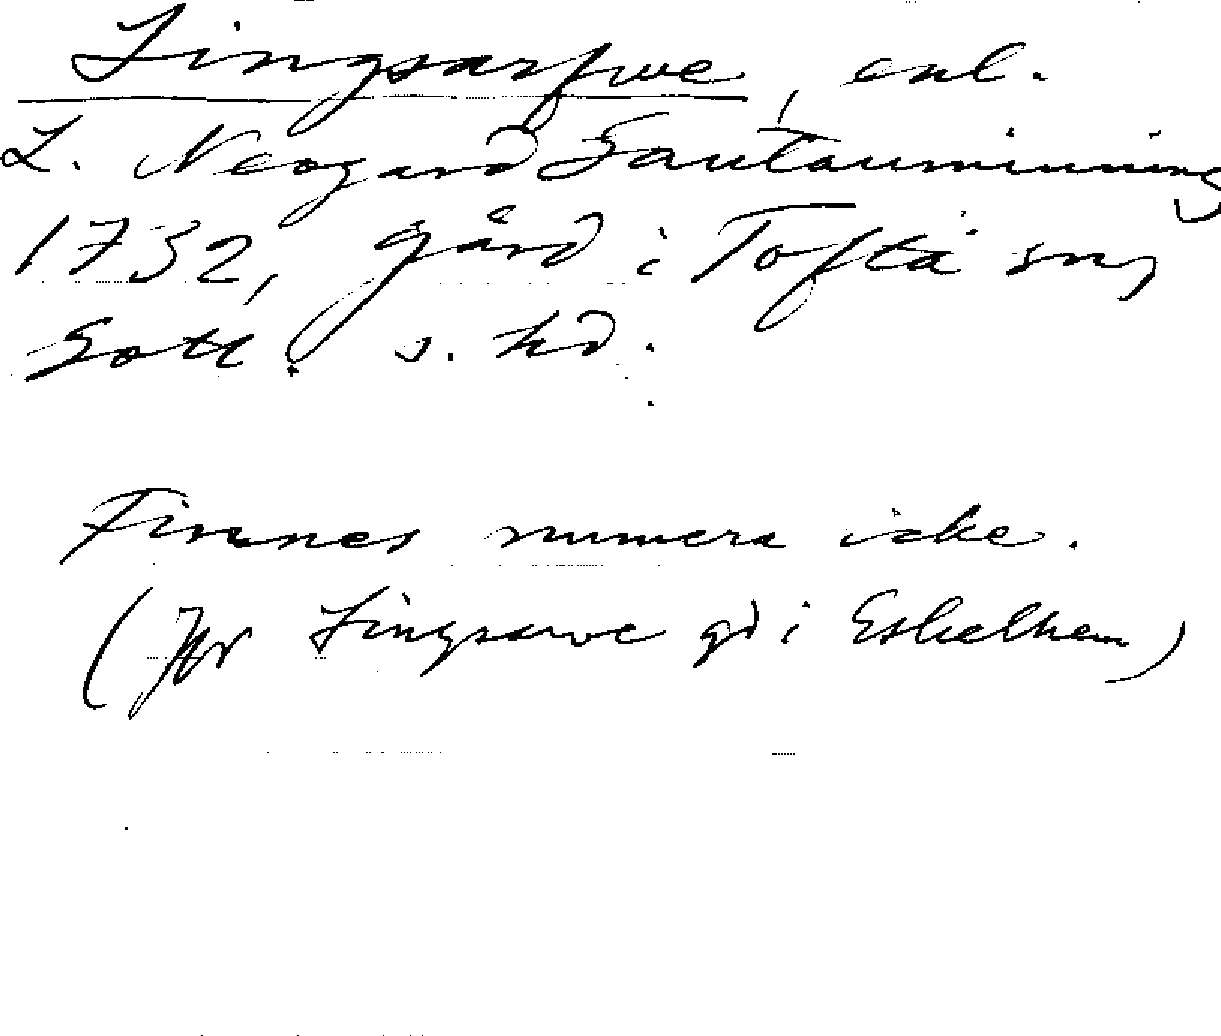 Lingsarfwe, enl.
L. Neogard Gautauminning
1732, gård i Tofta sn,
Gotl. s. hd.
Finnes numera icke.
(Jfr Lingsarve gd i Eskelhem)